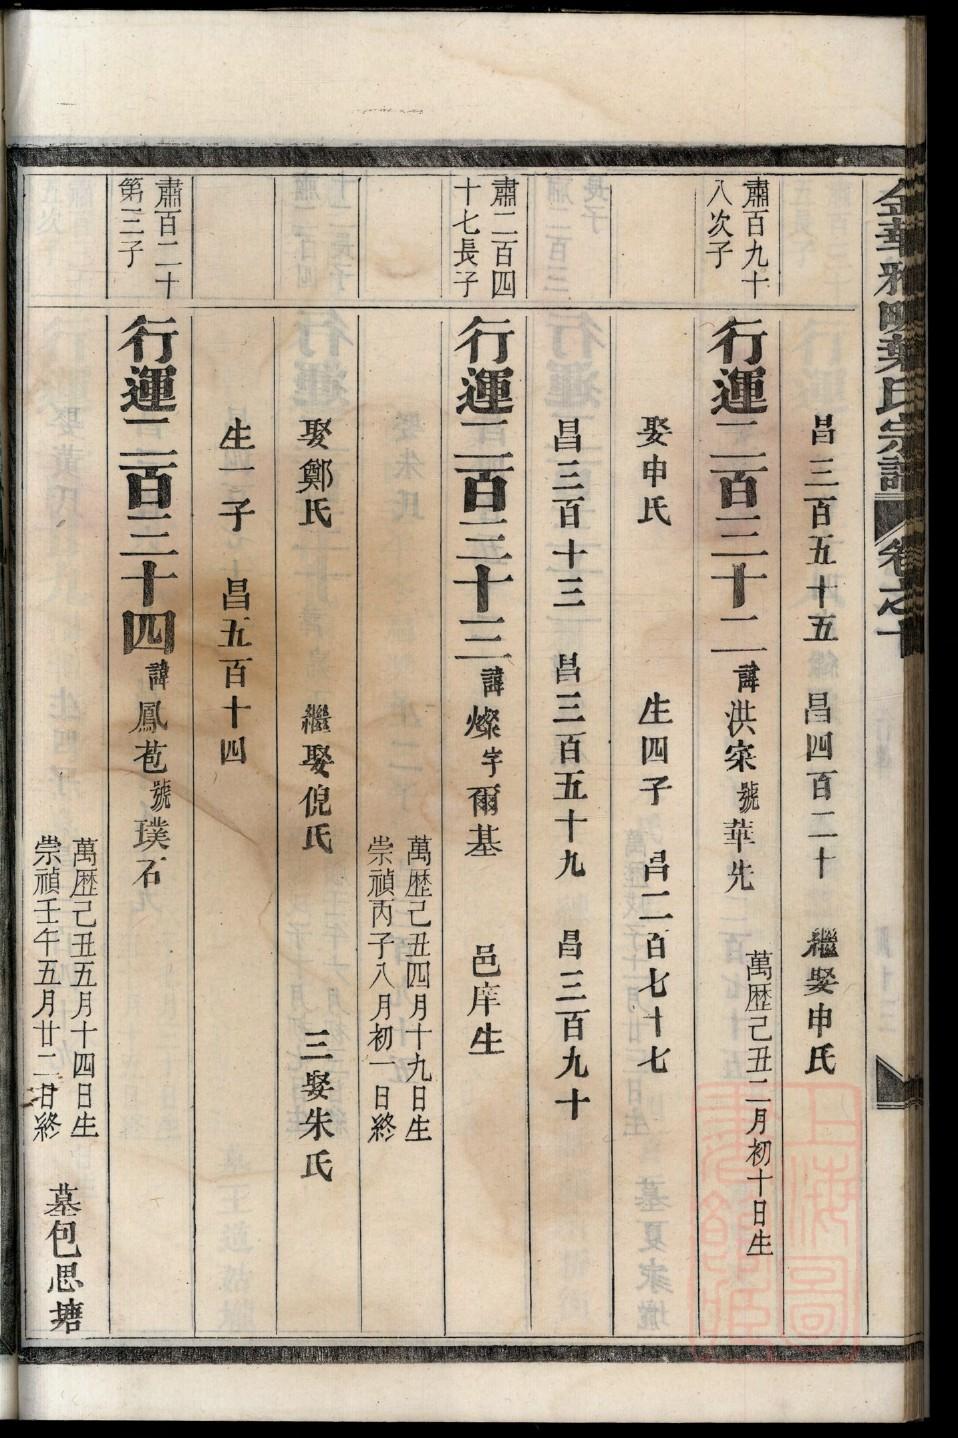 金華雅畈葉氏宗譜 卷之十
昌三百五十五 昌四百二十 繼娶申氏
肅百九十八次子
行運二百三十二 諱洪寀 號華先 萬歷己丑二月初十日生
娶申氏 生四子 昌二百七十七
昌三百十三 昌三百五十九 昌三百九十
肅二百四十七長子
行運二百三十三 諱燦 字爾基 邑庠生
萬歷己丑四月十九日生
崇禎丙子八月初一日終
娶鄭氏 繼娶倪氏 三娶朱氏
生一子 昌五百十四
肅百二十第三子
行運二百三十四 諱鳳苞 號璞石
萬歷己丑五月十四日生
崇禎壬午五月廿二日終 墓包思塘